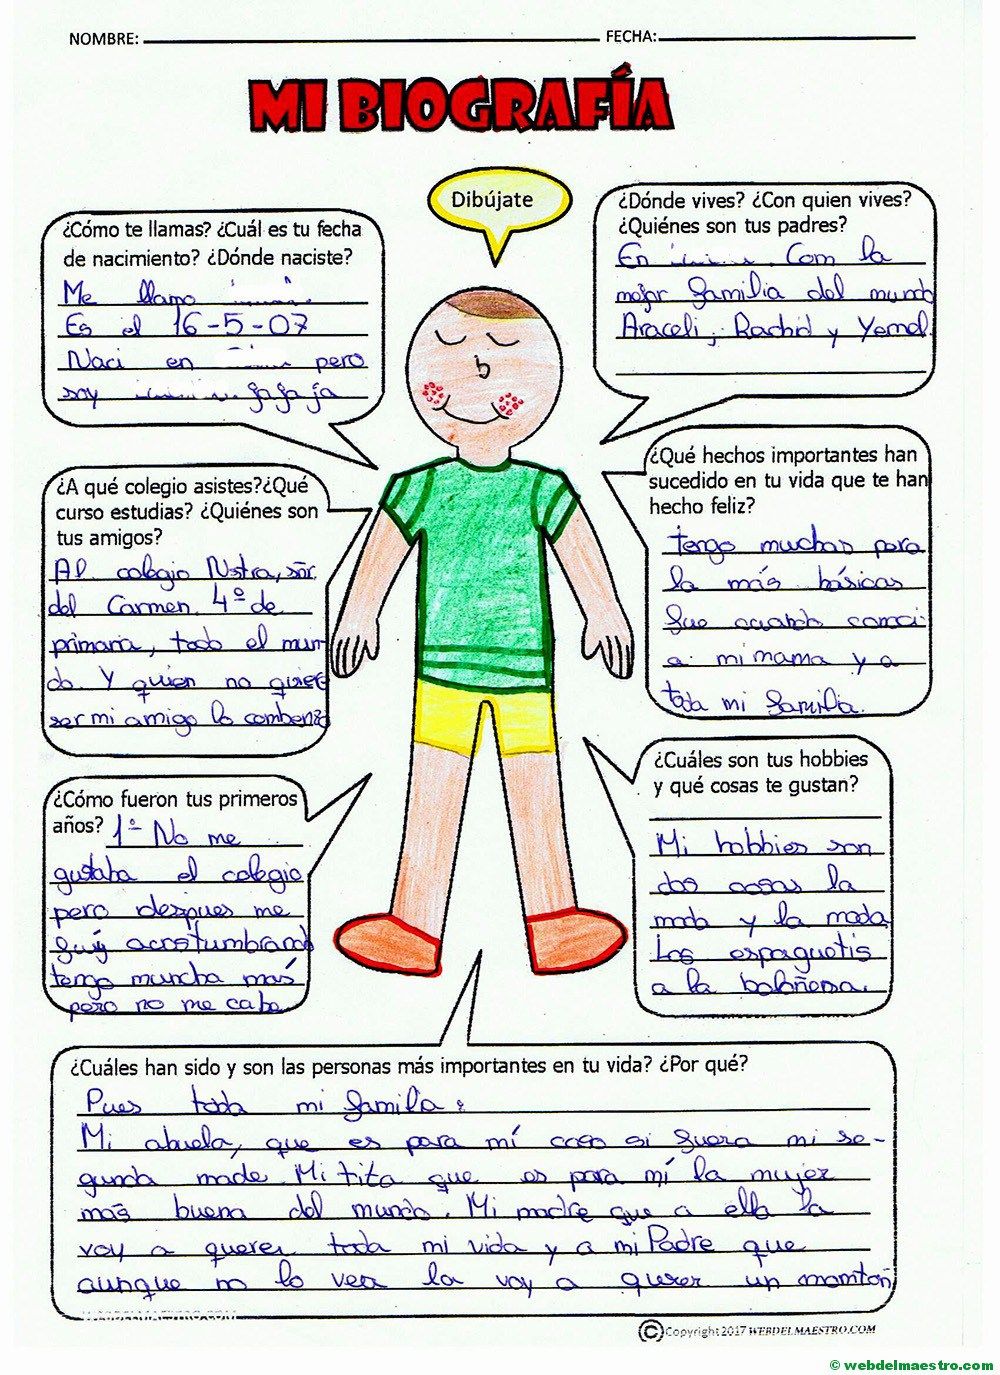 NOMBRE: FECHA:
MI BIOGRAFÍA
Dibújate
¿Cómo te llamas? ¿Cuál es tu fecha
de nacimiento? ¿Dónde naciste?
Me llamo
Es el 16-5-07
Naci en pero
soy jajaja
¿Dónde vives? ¿Con quien vives?
¿Quiénes son tus padres?
En Com la
mejor familia del mundo
Araceli, Rachid y Yemal.
¿A qué colegio asistes?¿Qué
curso estudias? ¿Quiénes son
tus amigos?
Al colegio Nstra, sñr.
del Carmen. 4º de
primaria, todo el mun-
do. Y quien no quiere
ser mi amigo lo combenzo
¿Qué hechos importantes han
sucedido en tu vida que te han
hecho feliz?
tengo muchas pero
la más básicas
fue cuando conoci
a mi mama y a
toda mi familia.
¿Cómo fueron tus primeros
años? 1º No me
gustaba el colegio
pero despues me
fuy acostumbrando
tengo muncha más
pero no me cabe
¿Cuáles son tus hobbies
y qué cosas te gustan?
Mi hobbies son
dos cosas la
moda y la moda
Los espaguetis
a la boloñesa.
¿Cuáles han sido y son las personas más importantes en tu vida? ¿Por qué?
Pues toda mi familia:
Mi abuela, que es para mí como si fuera mi se-
gunda made. Mi tita que es para mí la mujer
más buena del mundo. Mi madre que a ella la
voy a querer toda mi vida y a mi Padre que
aunque no lo vea la voy a querer un momtón
WEBDELMAESTRO.COM
©Copyright 2017 WEBDELMAESTRO.COM
© webdelmaestro.com